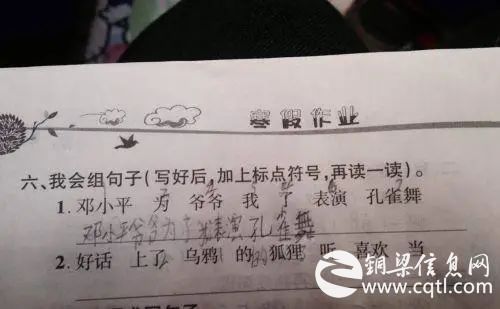 寒假作业
六、我会组句子(写好后,加上标点符号,再读一读)。
1. 邓小平 为 爷爷 我 了 表演 孔雀舞
邓小平爷爷为了我表演孔雀舞
2. 好话 上了 乌鸦 的 狐狸 听 喜欢 当
铜梁信息网
www.cqtl.com